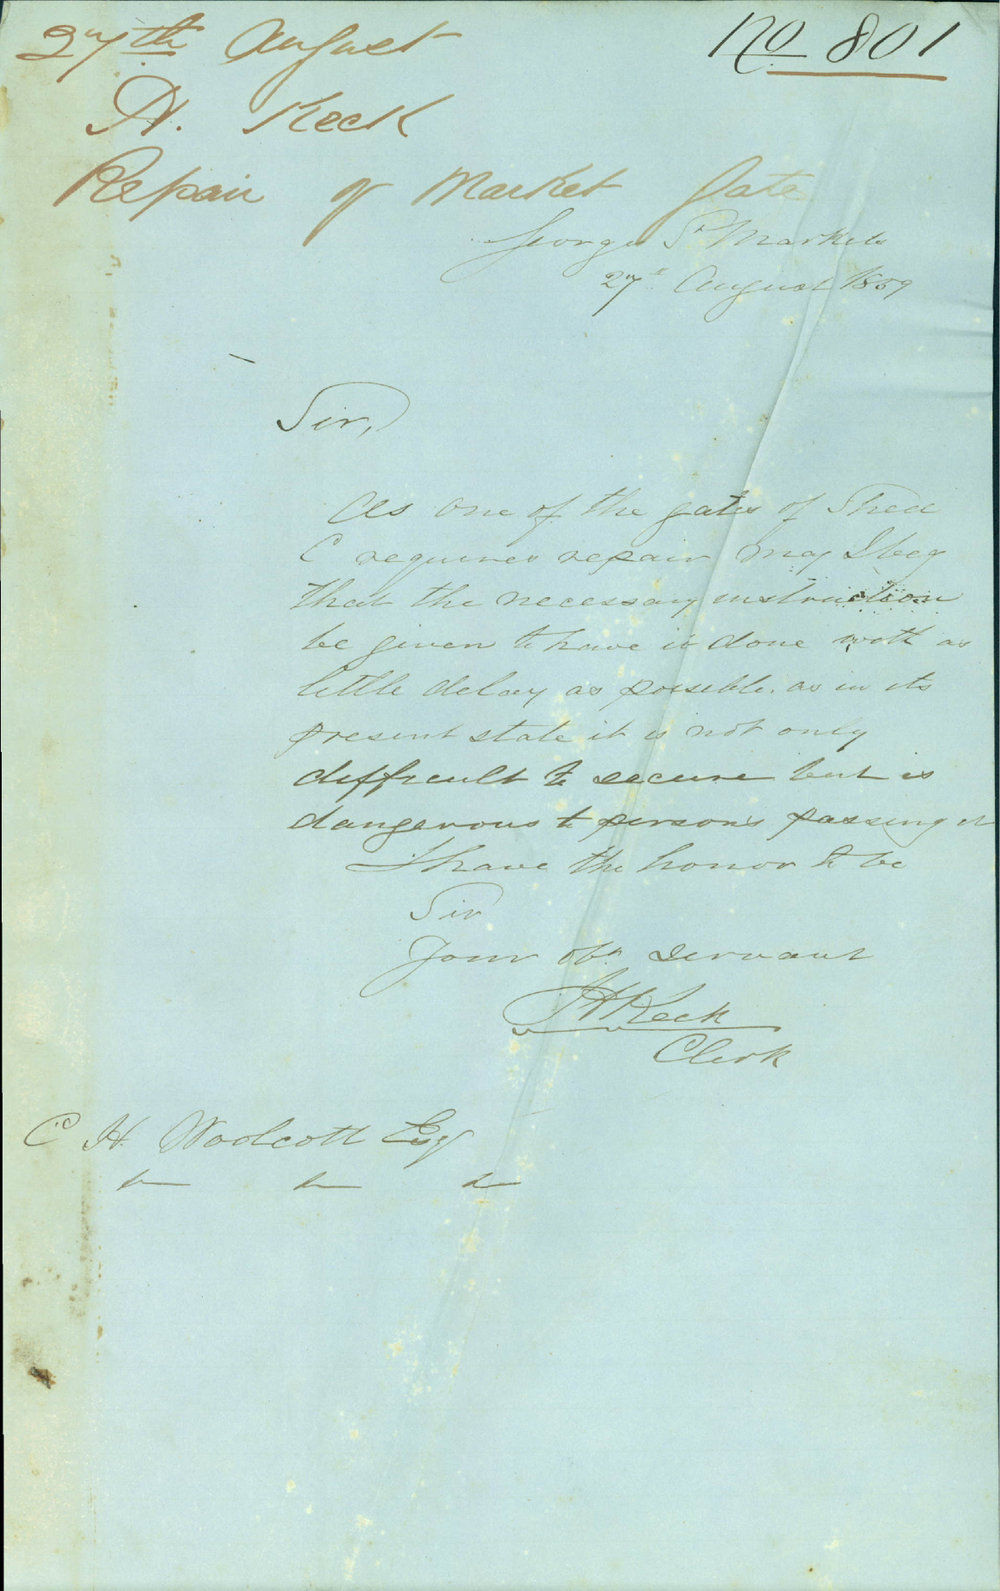 27th August
No 801
H. Keck
Repair of Market Gate
George St Markets
27th August 1859
Sir,
As one of the gates of Shed
C requires repair may I beg
that the necessary instruction
be given to have it done with as
little delay as possible. as in its
present state it is not only
difficult to secure but is
dangerous to persons passing it
I have the honor to be
Sir
Your obt servant
H Keck
Clerk
C H. Woolcott Esq